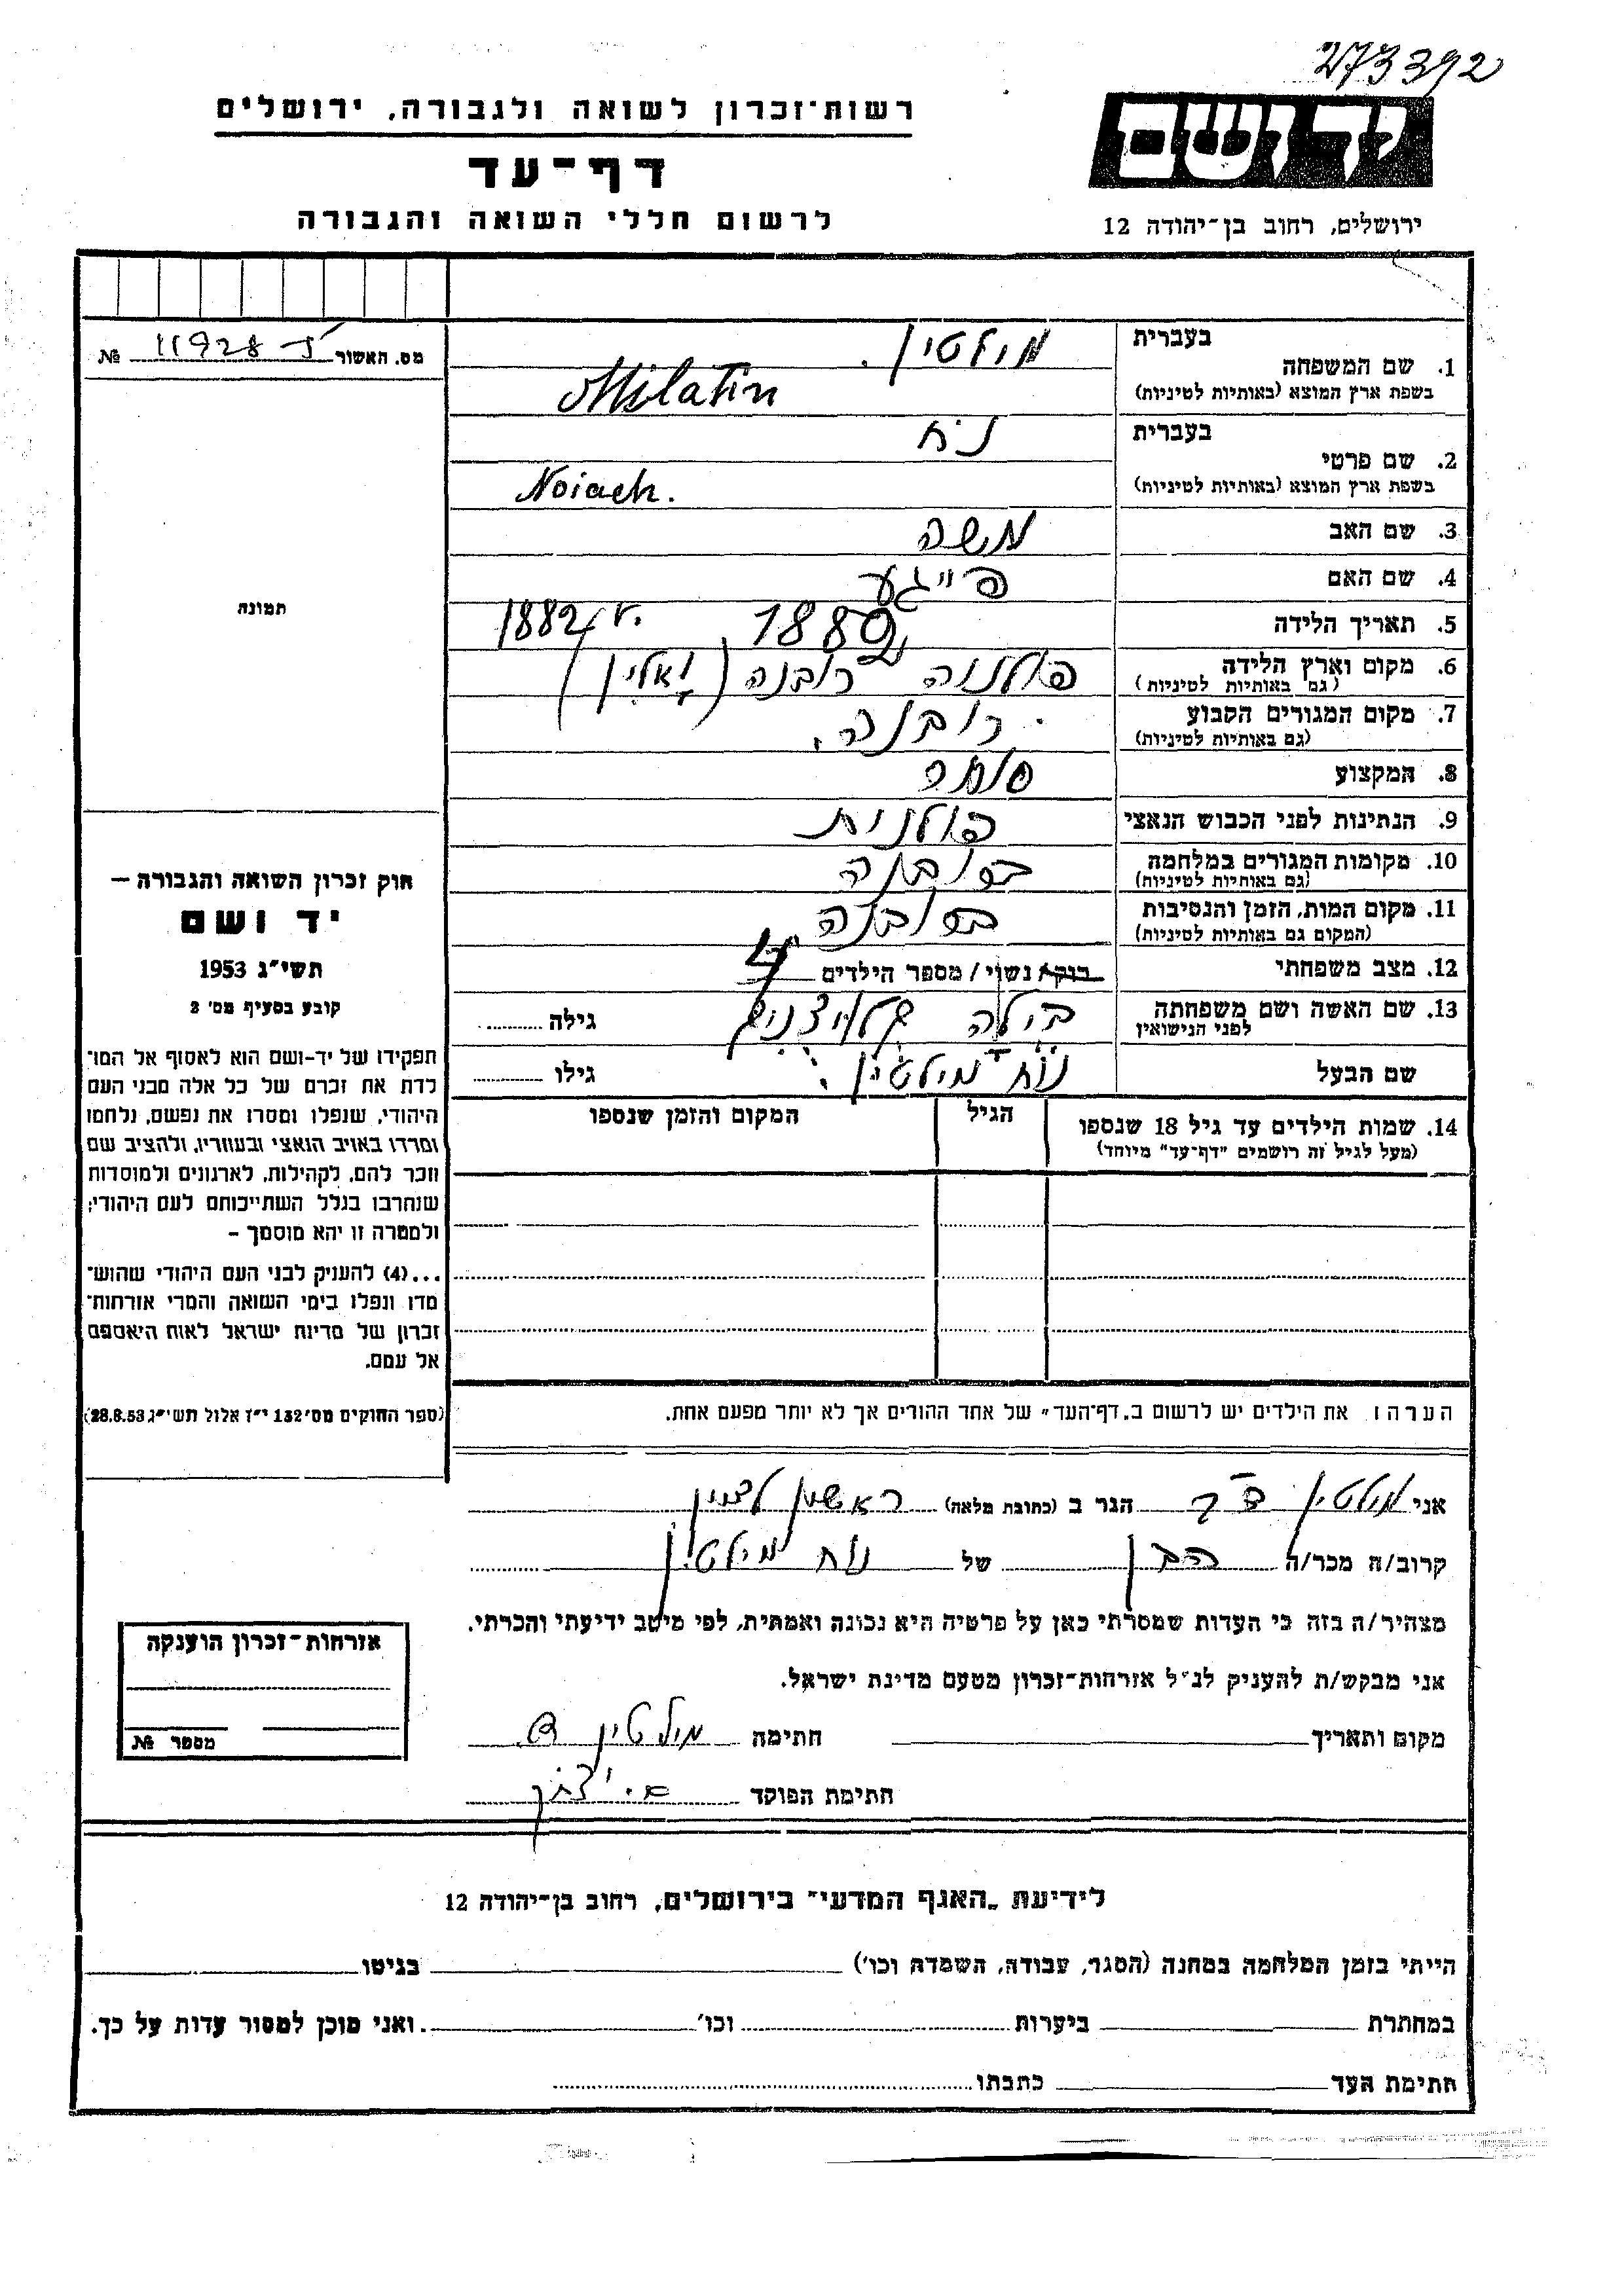 273392
יד ושם
ירושלים, רחוב בן־יהודה 12
רשות־זכרון לשואה ולגבורה, ירושלים
דף־עד
לרשום חללי השואה והגבורה
מס. האשור 11928 №
1. שם המשפחה
בעברית מילטין
בשפת ארץ המוצא (באותיות לטיניות) Milatin
2. שם פרטי
בעברית נח
בשפת ארץ המוצא (באותיות לטיניות) Noiach.
3. שם האב משה
4. שם האם פייגע
5. תאריך הלידה 1882 1882
6. מקום וארץ הלידה פולניה רובנה (ואלין)
(גם באותיות לטיניות)
7. מקום המגורים הקבוע רובנה.
(גם באותיות לטיניות)
8. המקצוע סוחר
9. הנתינות לפני הכבוש הנאצי פולנית
10. מקומות המגורים במלחמה ברובנה
(גם באותיות לטיניות)
11. מקום המות, הזמן והנסיבות ברובנה
(המקום גם באותיות לטיניות)
12. מצב משפחתי רוק/ נשוי / מספר הילדים 4
13. שם האשה ושם משפחתה ביילה
לפני הנישואין
גילה
שם הבעל נוח מילטין גילו
14. שמות הילדים עד גיל 18 שנספו
(מעל לגיל זה רושמים "דף־עד" מיוחד)
הגיל
המקום והזמן שנספו
הערה: את הילדים יש לרשום ב„דף־העד" של אחד ההורים אך לא יותר מפעם אחת.
תמונה
חוק זכרון השואה והגבורה —
יד ושם
תשי"ג 1953
קובע בסעיף מס' 2
תפקידו של יד-ושם הוא לאסוף אל המו־
לדת את זכרם של כל אלה מבני העם
היהודי, שנפלו ומסרו את נפשם, נלחמו
ומרדו באויב הנאצי ובעוזריו, ולהציב שם
וזכר להם, לקהילות, לארגונים ולמוסדות
שנחרבו בגלל השתייכותם לעם היהודי;
ולמטרה זו יהא מוסמך —
...(4) להעניק לבני העם היהודי שהוש־
מדו ונפלו בימי השואה והמרי אזרחות־
זכרון של מדינת ישראל לאות היאספם
אל עמם.
(ספר החוקים מס' 132 י"ז אלול תשי"ג 28.8.53)
אני מילטין הגר ב (כתובת מלאה) ראשון לציון
קרוב/ה מכר/ה הבן של נוח מילטין
מצהיר/ה בזה כי העדות שמסרתי כאן על פרטיה היא נכונה ואמתית, לפי מיטב ידיעתי והכרתי.
אני מבקש/ת להעניק לנ"ל אזרחות־זכרון מטעם מדינת ישראל.
מקום ותאריך חתימה מילטין
חתימת הפוקד
אזרחות־זכרון הוענקה
מספר №
לידיעת „האגף המדעי" בירושלים, רחוב בן־יהודה 12
הייתי בזמן המלחמה במחנה (הסגר, עבודה, השמדה וכו') בגיטו
במחתרת ביערות וכו' ואני מוכן למסור עדות על כך.
חתימת העד כתבתו